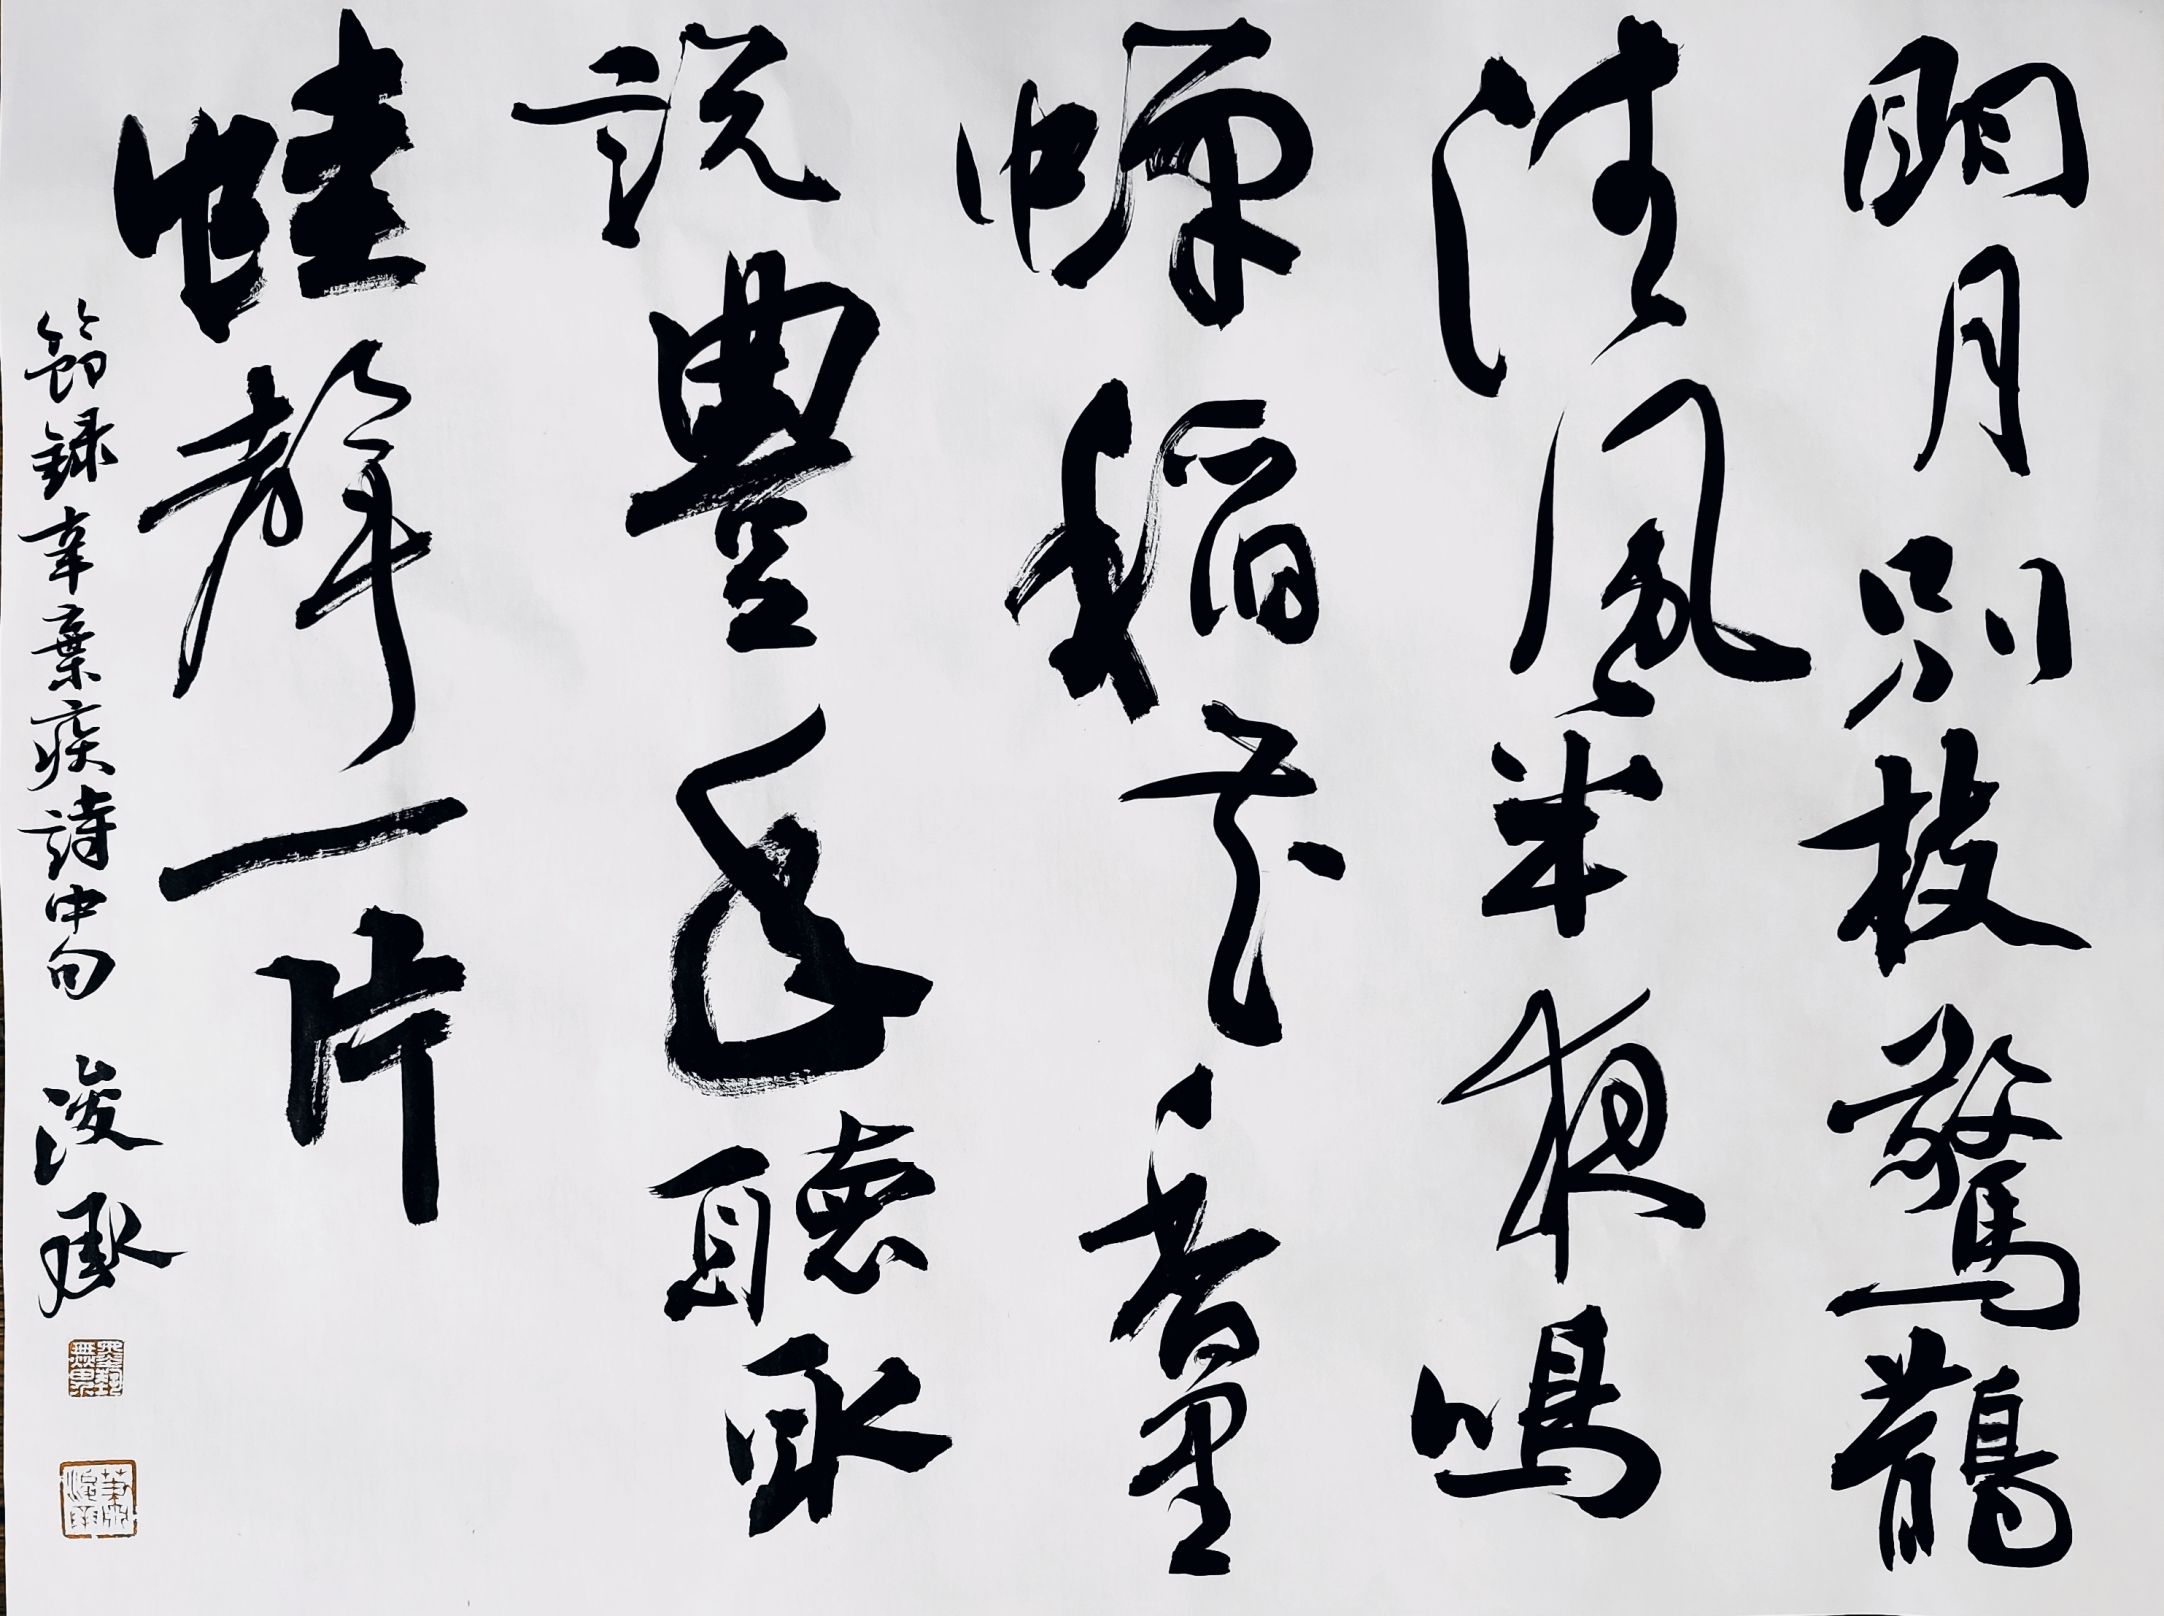 明月别枝驚鵲
清風半夜鳴
蟬稻花香里
説豐年聽取
蛙聲一片
節録辛棄疾詩中句 浚承